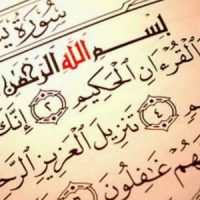 سُورَةُ يـ
بِسْمِ اللَّهِ الرَّحْمَٰنِ
الْقُرْءَانِ الْحَكِيمِ ٢ إِنَّكَ
٤ تَنزِيلَ الْعَزِيزِ الرَّحـ
هُمْ غَٰفِلُونَ